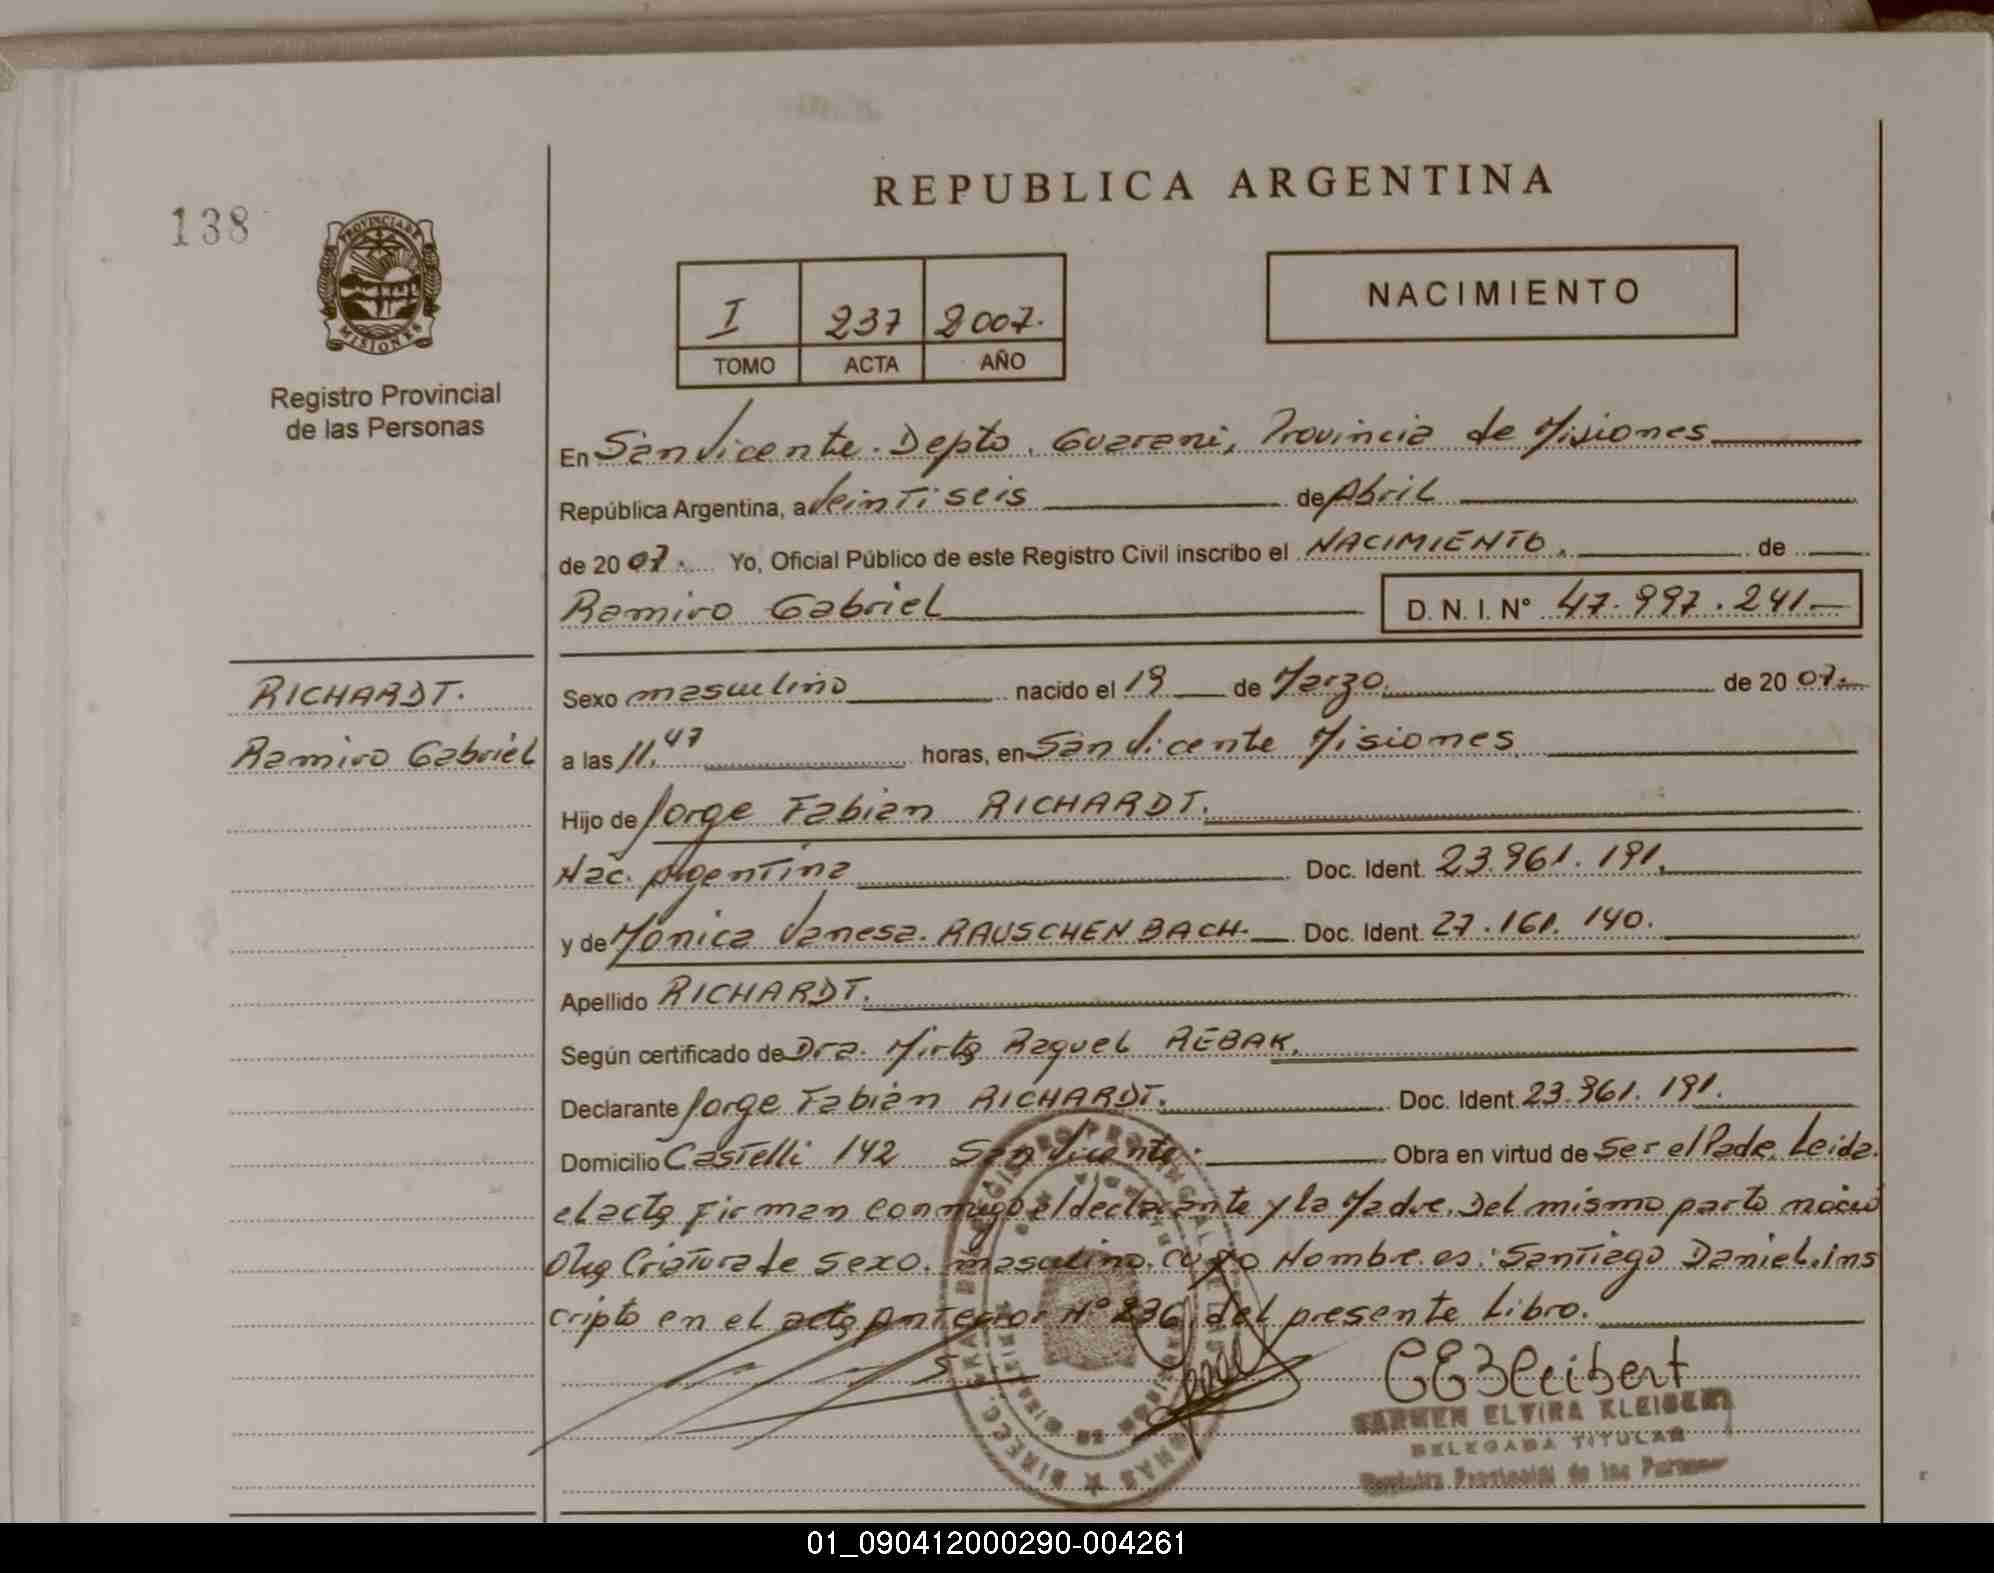 138
PROVINCIA DE
MISIONES
Registro Provincial
de las Personas
REPUBLICA ARGENTINA
I 237 2007.
TOMO ACTA AÑO
NACIMIENTO
En San Vicente. Depto. Guarani, Provincia de Misiones
República Argentina, a Veintiseis de Abril
de 20 07. Yo, Oficial Público de este Registro Civil inscribo el NACIMIENTO. de
Ramiro Gabriel D. N. I. N° 47.997.241
RICHARDT.
Ramiro Gabriel
Sexo masculino nacido el 19 de Marzo de 20 07.
a las 11.47 horas, en San Vicente Misiones
Hijo de Jorge Fabian RICHARDT.
Nac. Argentina Doc. Ident. 23.961.191.
y de Monica Vanesa. RAUSCHENBACH. Doc. Ident. 27.161.140.
Apellido RICHARDT.
Según certificado de Dra. Mirta Raquel REBAK.
Declarante Jorge Fabian RICHARDT. Doc. Ident. 23.961.191.
Domicilio Castelli 142 San Vicente. Obra en virtud de Ser el Padre. Leida.
el acta Firman conmigo el declarante y la Madre. Del mismo parto nació
Otra Criatura de sexo. masculino. cuyo Nombre. es: Santiago Daniel. ins
cripto en el acta Anterior N° 236, del presente Libro.
CEKleibert
CARMEN ELVIRA KLEIBERT
DELEGADA TITULAR
Registro Provincial de las Personas
01_090412000290-004261